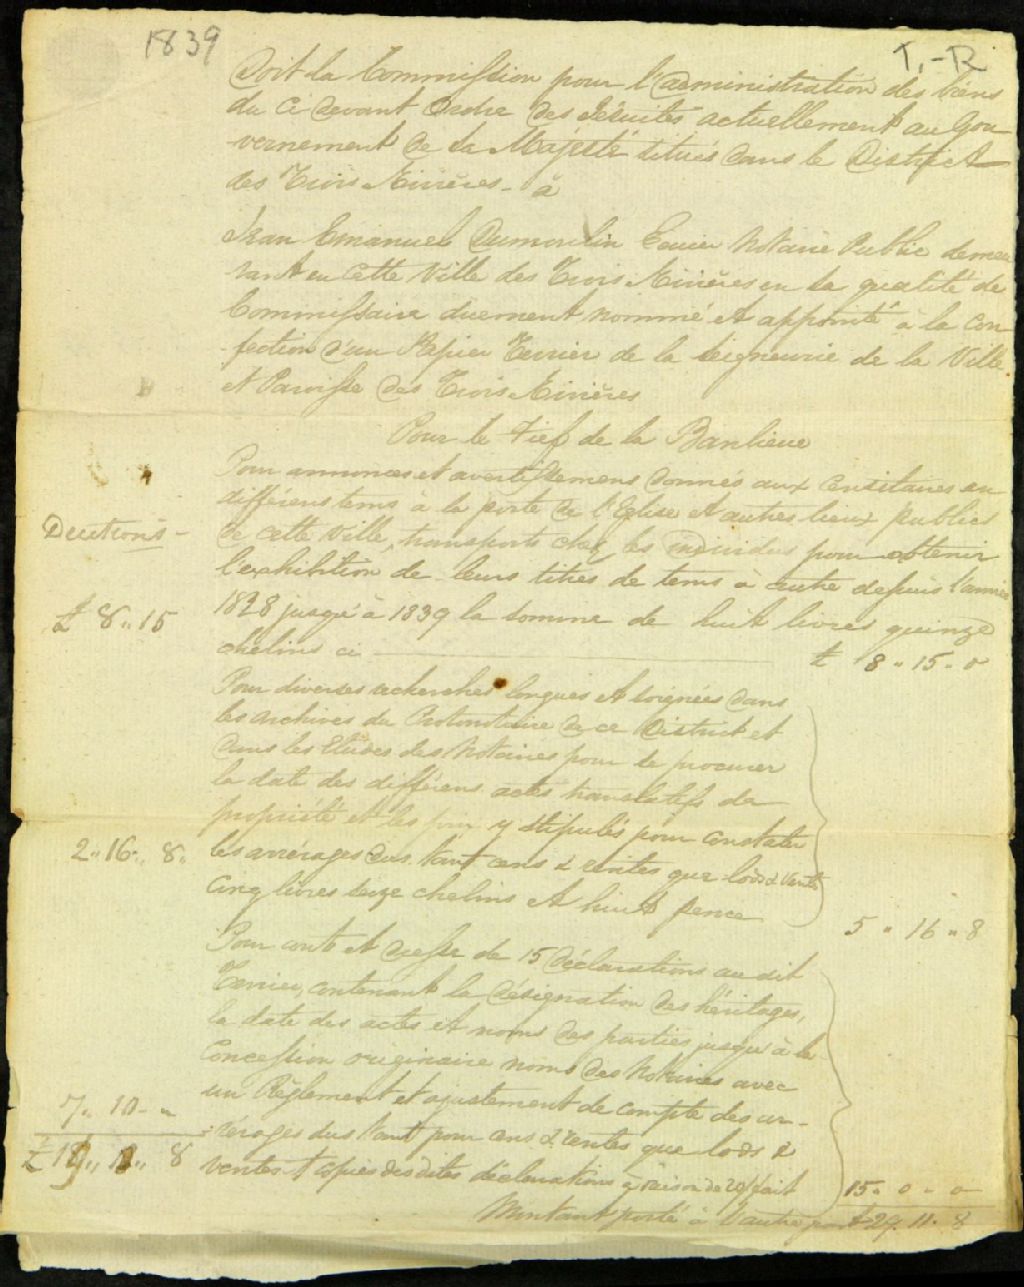 1839
T.-R
Doit la Commission pour l'administration des biens
du ci devant Ordre des Jésuites actuellement au Gou
vernement de Sa Majesté situés dans le District
des Trois Rivières - à
Jean Emanuel Dumoulin Ecuier Notaire Public demeu
rant en cette Ville des Trois Rivières en sa qualité de
Commissaire duement nommé et appointé à la con
fection d'un Papier Terrier de la Seigneurie de la Ville
et Paroisse des Trois Rivières
Pour le Fief de la Banlieue
Pour annonces et avertissemens donnés aux Censitaires en
différens tems à la porte de l'Eglise et autres lieux publics
de cette Ville, transports chez les individus pour obtenir
l'exhibition de leurs titres de tems à autre depuis l'année
1838 jusqu'à 1839 la somme de huit livres quinze
chelins ci £ 8 " 15 - 0
Deductions -
£ 8 " 15
Pour diverses recherches longues et soignées dans
les archives du Protonotaire de ce District et
dans les Etudes des Notaires pour se procurer
la date des différens actes translatifs de
propriété et les prix y stipulés pour constater
les arrérages dus tant cens & rentes que lods & ventes
Cinq livres seize chelins et huit pence
5 " 16 " 8
2 " 16 " 8 "
Pour et de 15 Déclarations au dit
Terrier, contenant la désignation des héritages,
la date des actes et noms des parties jusqu'à la
Concession originaire noms des Notaires avec
un Règlement et ajustement de compte des ar-
rérages dus tant pour cens & rentes que lods &
ventes & copies des dites déclarations à raison de 20/ fait
15 " 0 - 0
7 " 10 - "
£ 19 " " 8
Montant porté à l'autre part £ 29 " 11 " 8